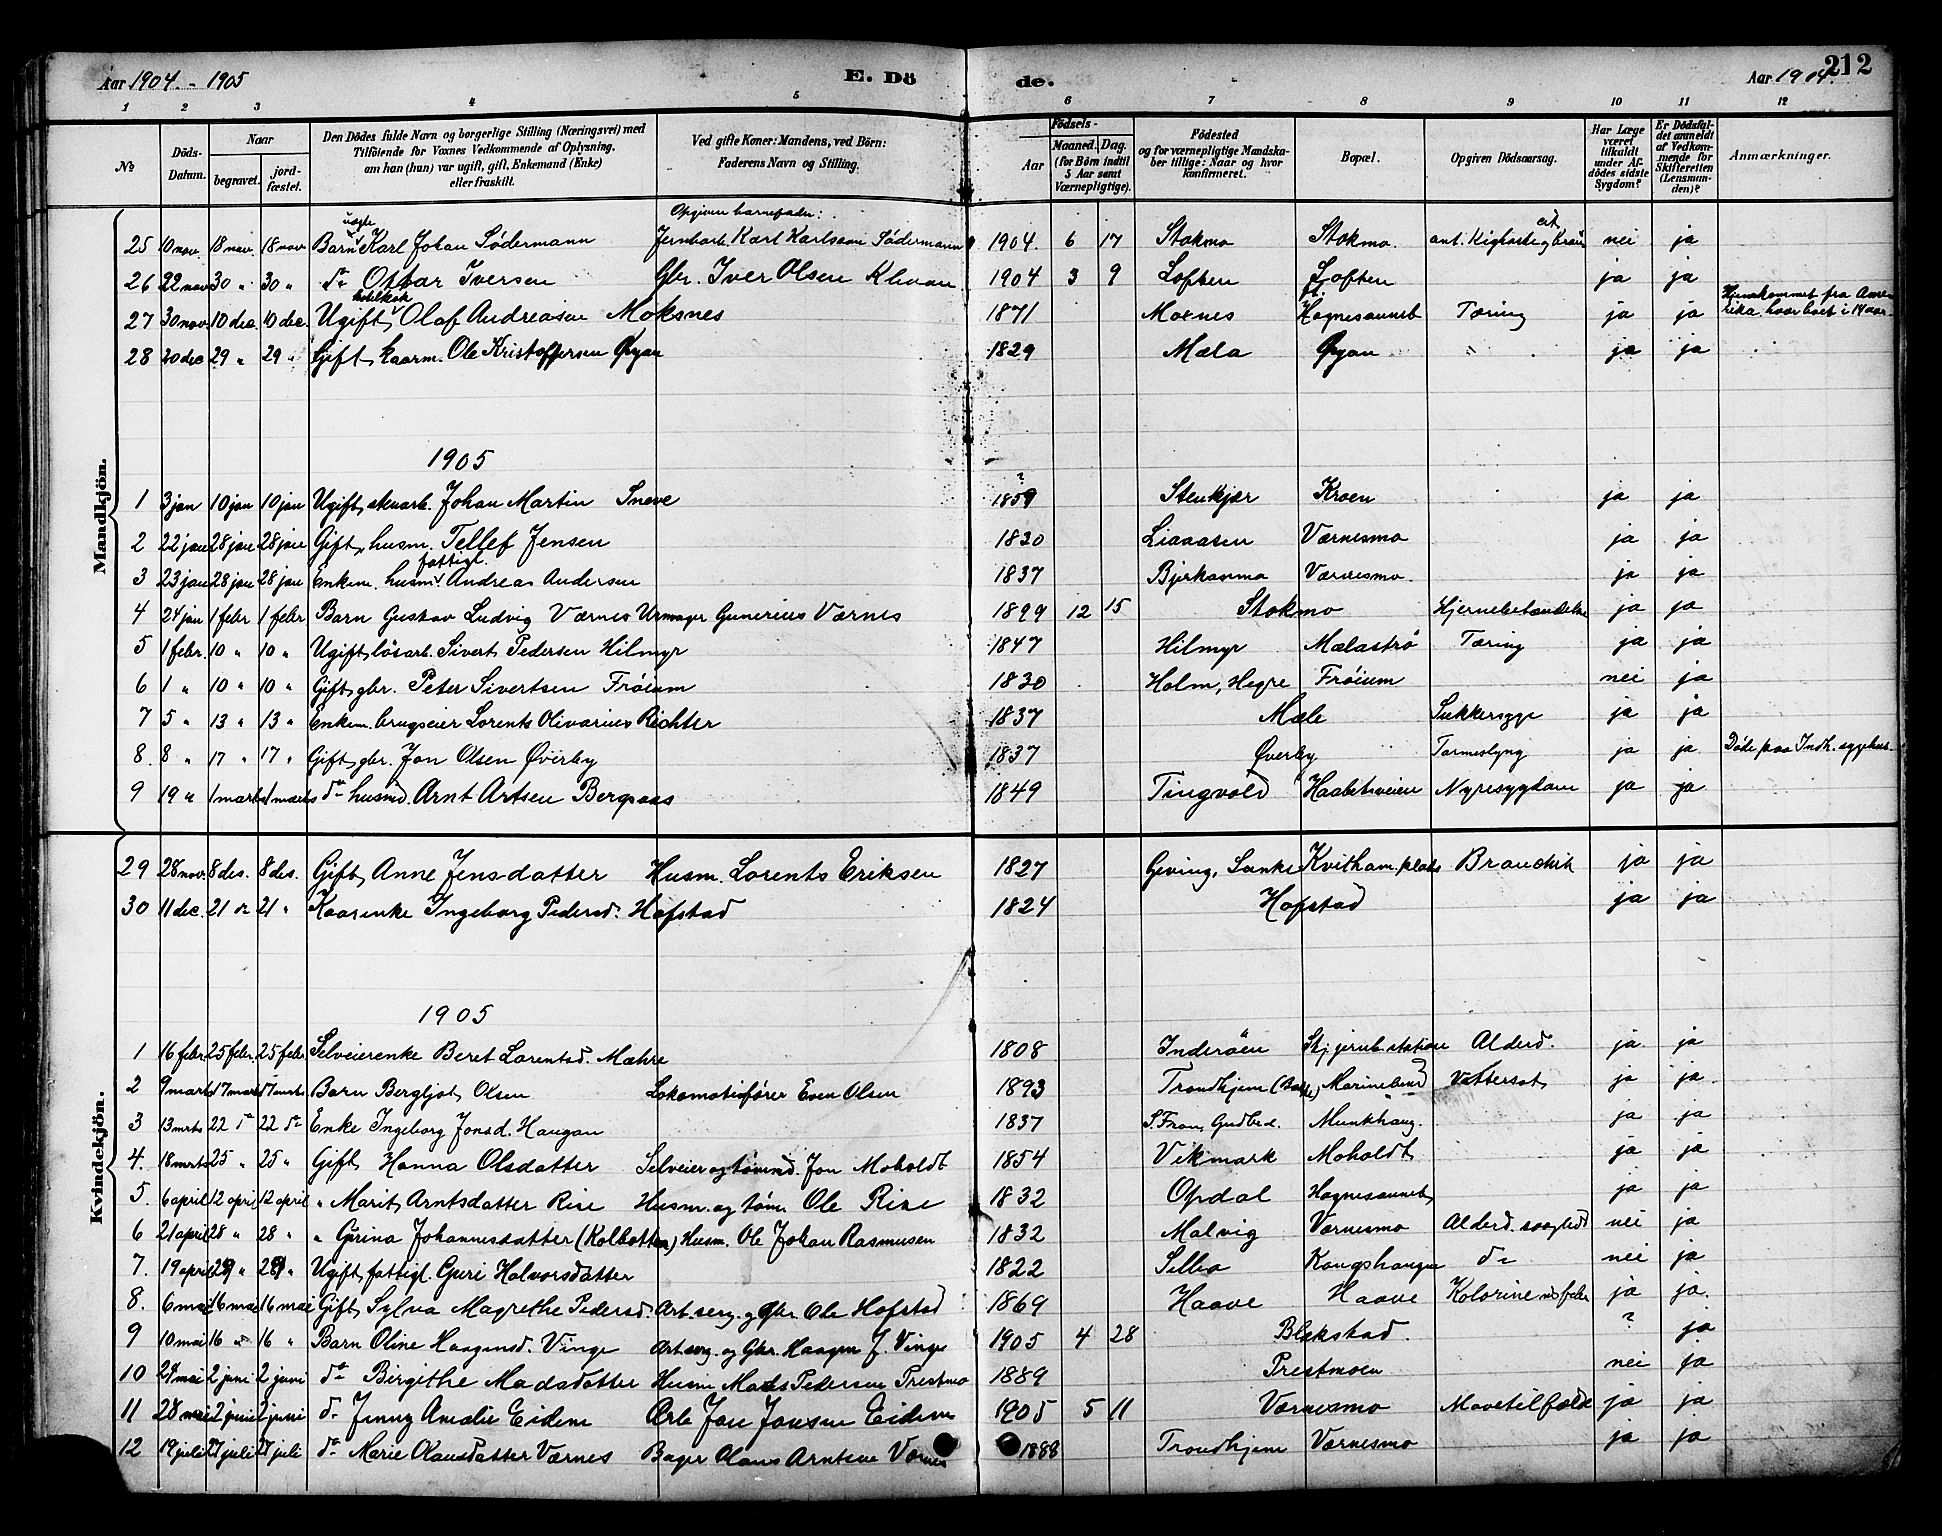 Aar 1904 - 1905 E. Dö de. Aar 1904. 212
1 2 3 4 5 6 7 8 9 10 11 12
№
Döds-Datum.
Naar
begravet.
jordfæstet.
Den Dödes fulde Navn og borgerlige Stilling (Næringsvei) med
Tilföiende for Voxnes Vedkommende af Oplysning,
om han (hun) var ugift, gift, Enkemand (Enke)
eller fraskilt.
Ved gifte Koner: Mandens, ved Börn:
Faderens Navn og Stilling.
Födsels-
Aar
Maaned. Dag.
(for Börn indtil 5 Aar samt Værnepligtige).
Födested
og for værnepligtige Mandskaber tillige: Naar og hvor konfirmeret.
Bopæl.
Opgiven Dödsaarsag.
Har Læge været tilkaldt under Afdödes sidste Sygdom?
Er Dödsfaldet anmeldt af Vedkommende for Skifteretten (Lensmanden)?
Anmærkninger.
Mandkjön.
Opgiven barnefader:
25 10 nov. 18 nov. 18 nov. uægte Barn Karl Johan Södermann Jernbarb. Karl Karlsson Södermann 1904. 6 17 Stokmo Stokmo. nei ja
26 22 nov 30 " 30 " do Ottar Iversen Gbr. Iver Olsen 1904 3 9 Loften Loften ja ja
27 30 nov. 10 dec. 10 dec. Ugift, hotelkok Olaf Andreasen Moksnes 1871 Moxnes Hognesaunet Tæring ja ja Hjemkommet fra Amerika, hvor boet i 14 aar.
28 20 dec 29 " 29 " Gift, kaarm. Ole Kristoffersen Øyan 1829 Mæla Øyan ja ja
1905
1 3 jan 10 jan 10 jan Ugift, Johan Martin Sneve ? 1859 Stenkjær Kroen ja ja
2 22 jan 28 jan 28 jan Gift, husm. Tellef Jensen 1830 Liaaasen Værnesmo ja ja
3 23 jan 28 jan 28 jan Enkem. husm. fattigl. Andreas Andersen 1837 Værnesmo. ja ja
4 24 jan 1 febr 1 febr Barn Gustav Ludvig Værnes Urmager Gunerius Værnes 1899 12 15 Stokmo Hjernebetændelse ja ja
5 1 febr. 10 " 10 " Ugift, lösarb. Sivert Pedersen Hilmyr 1847 Hilmyr Mælaströ Tæring ja ja
6 1 " 10 " 10 " Gift, gbr. Peter Sivertsen Fröium 1830 Holm, Hegre Fröium nei ja
7 5 " 13 " 13 " Enkem. brugseier Lorents Olivarius Richter 1837 Mæle Sukkersyge ja ja
8. 8 " 17 " 17 " Gift, gbr. Jon Olsen Øverby 1837 Øverby Tarmeslyng ja ja Döde paa Indh. sygehus.
9 19 " 1 marts 1 marts do husmd. Arnt Artsen Bergsaas 1849 Tingvold Haabetsveien Nyresygdom ja ja
Kvindekjön.
29 28 nov. 8 des. 8 des. Gift, Anne Jensdatter Husm. Lorents Eriksen 1827 Geving, Kvitham. plads ja ja
30 11 dec. 21 " 21 " Kaarenke Ingeborg Pedersd. Hofstad 1824 Hofstad ja ja
1905
1 16 febr 25 febr. 25 febr Selveierenke Beret Lorentsd. Mæhre 1808 Inderöen Stj. jernb. station Alderd. ja ja
2 9 marts 17 marts 17 marts Barn Bergljot Olsen Lokomotivförer Even Olsen 1893 Trondhjem Vattersot ja ja
3 13 mrts 22 do 22 do Enke Ingeborg Jonsd. Haugan 1837 S. Fron, Gudbrd. Munkhaug. ja ja
4. 18 mrts 25 " 25 " Gift, Hanna Olsdatter Selveier og tömmd. Jon Moholdt 1854 Vikmark Moholdt ja ja
5. 6 april 12 april 12 april " Marit Arntsdatter Rise Husm. og töm. Ole Rise 1832 Opdal Hognesaunet ja ja
6 21 april 28 " 28 " " Gurina Johannesdatter (Kolbotten) Husm. Ole Johan Rasmusen 1832 Malvig Værnesmo Alderd. nei ja
7. 19 april 29 " 29 " Ugift, fattigl. Guri Halvorsdatter 1822 Selbo Kongshaugen do nei ja
8. 6 mai 16 mai 16 mai Gift, Sylva Magrethe Pedersd. Arb. serg. og Gbr. Ole Hofstad 1869 Haave Haave ja ja.
9 10 mai 16 " 16 " Barn Oline Haagensd. Vinge Art. serg. og Gbr. Haagen J. Vinge 1905 4 28 Blekstad. ? ja
10 24 mai 2 juni 2 juni do Birgithe Madsdatter Husm Mads Pedersen Prestmo 1889 Prestmoen nei ja
11 28 mai 2 juni 2 juni do Jenny Amalie Eidem Arb. Jon Jonsen Eidem 1905 5 11 Værnesmo Mavetilfælde ja ja
12 19 juli 27 juli 27 juli do Marie Olausdatter Værnes Bager Olaus Arntsen Værnes 1888 Trondhjem Værnesmo ja ja